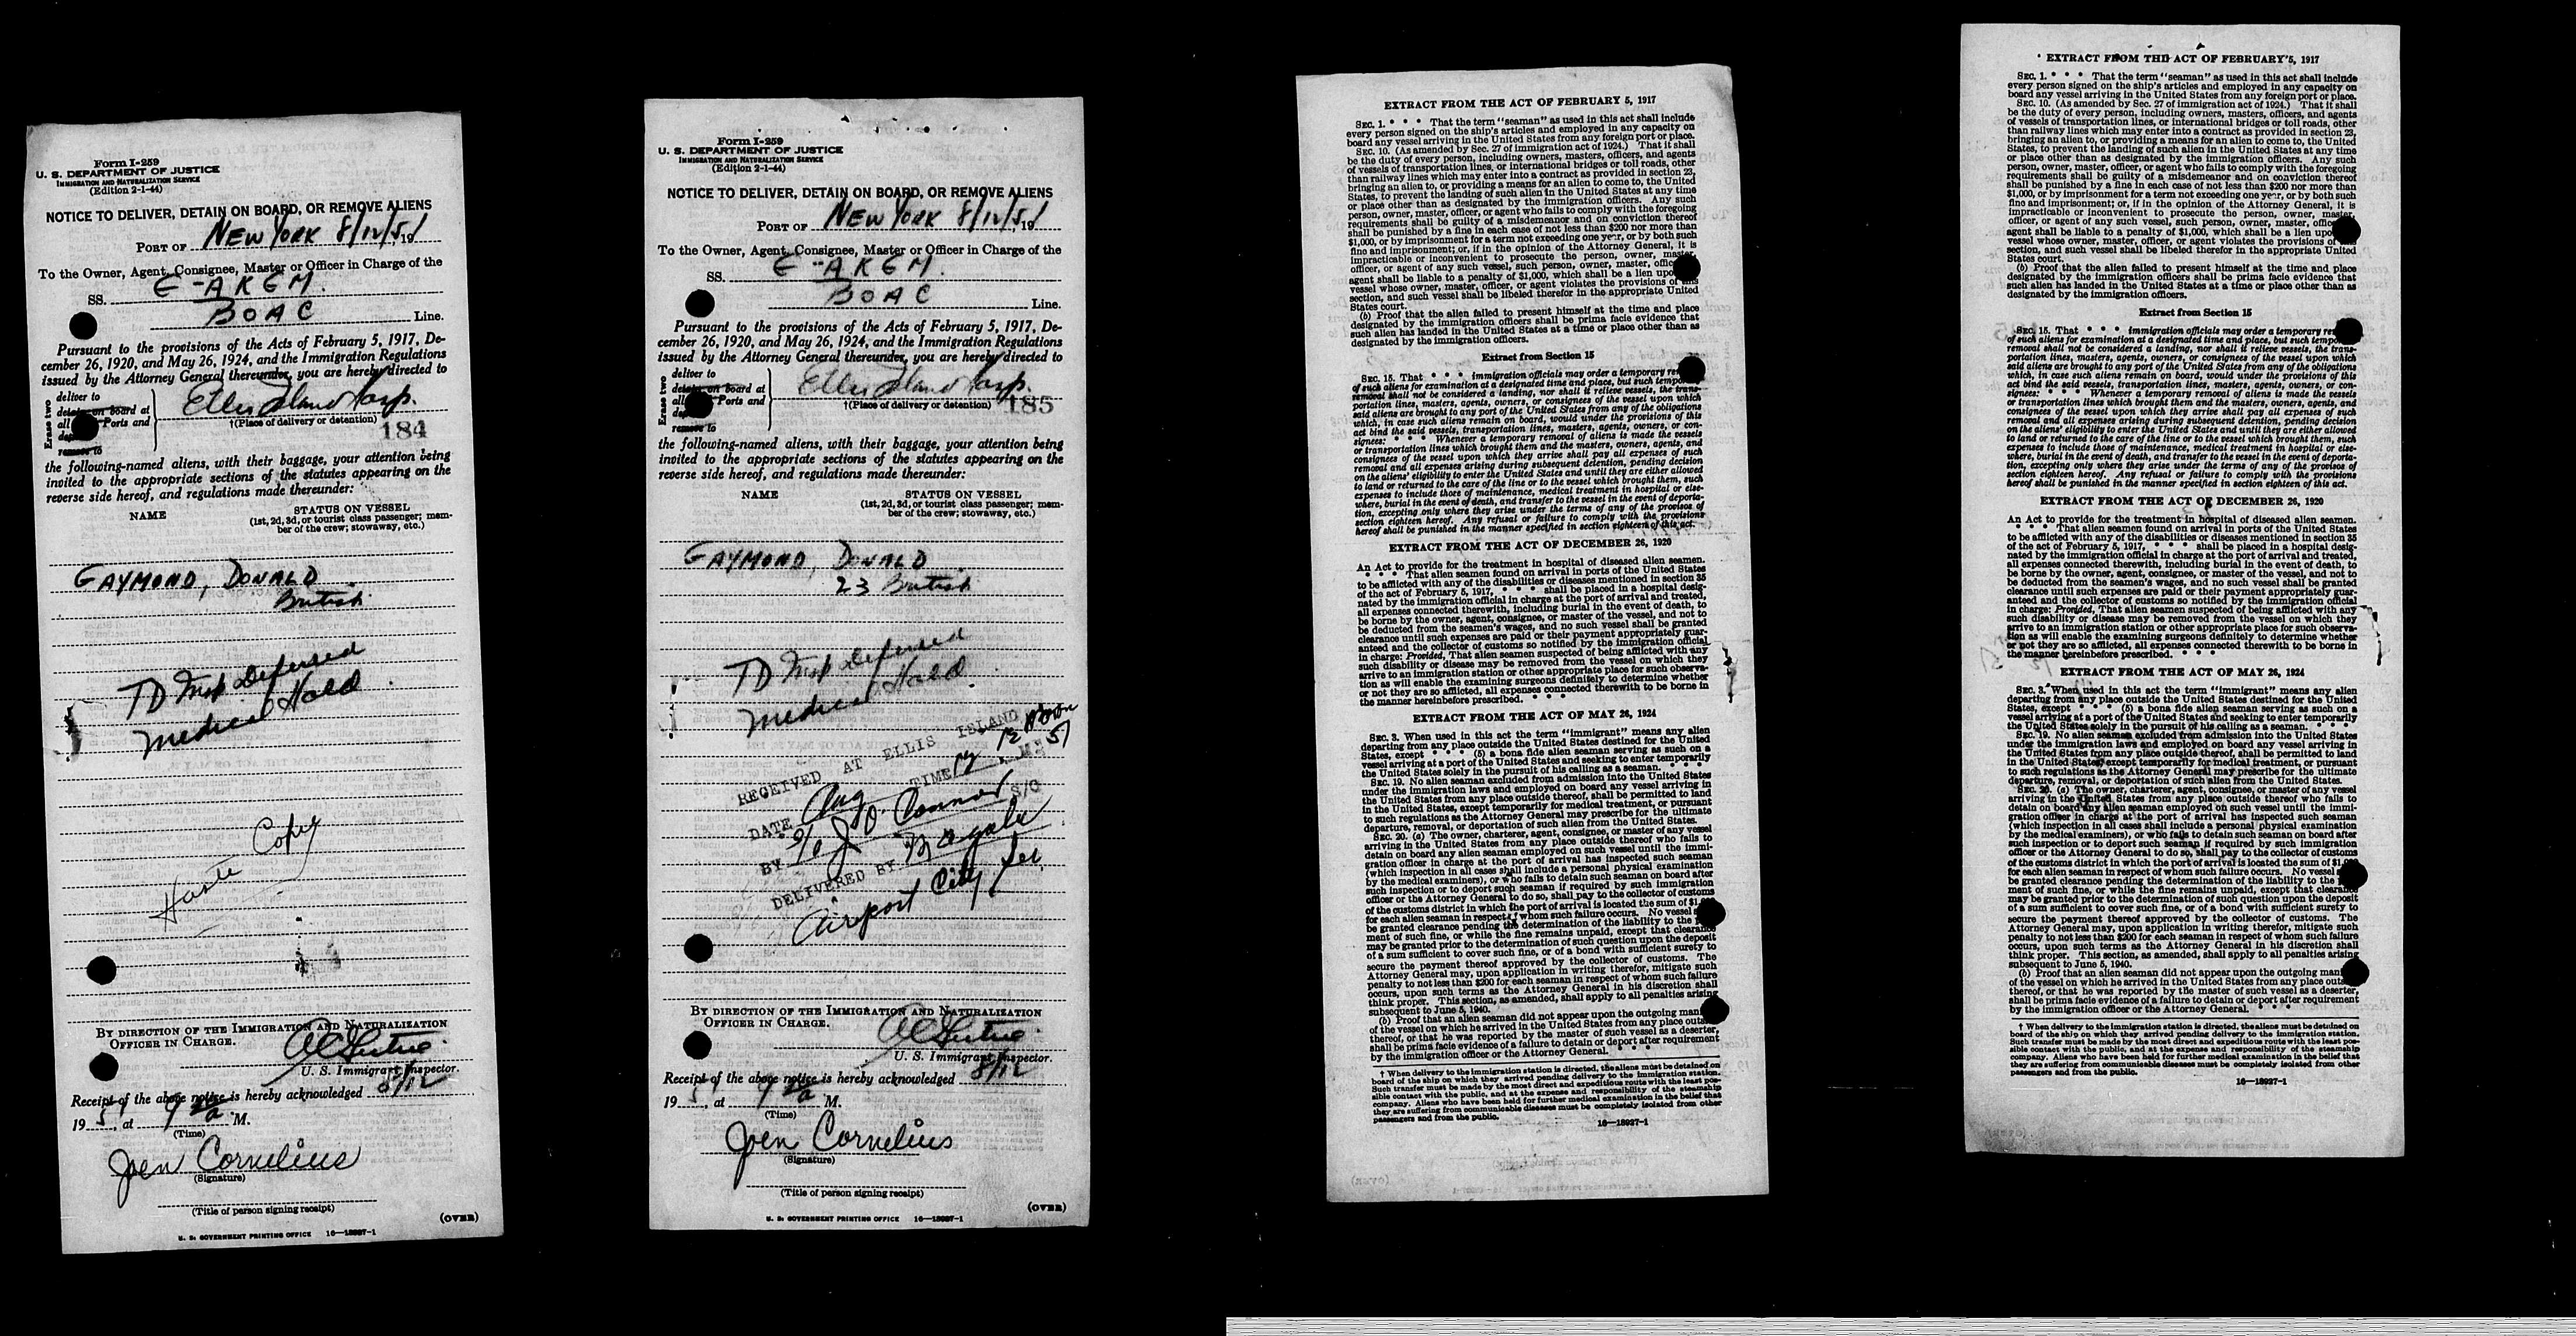 Form I-259
U. S. DEPARTMENT OF JUSTICE
IMMIGRATION AND NATURALIZATION SERVICE
(Edition 2-1-44)
NOTICE TO DELIVER, DETAIN ON BOARD, OR REMOVE ALIENS
PORT OF NEW YORK 8/12/51 19
To the Owner, Agent, Consignee, Master or Officer in Charge of the
SS. G-AKGM.
BOAC Line.
Pursuant to the provisions of the Acts of February 5, 1917, De-
cember 26, 1920, and May 26, 1924, and the Immigration Regulations
issued by the Attorney General thereunder, you are hereby directed to
Erase two
deliver to
detain on board at
all Ports and
remove to
Ellis Island Hosp.
†(Place of delivery or detention)
184
the following-named aliens, with their baggage, your attention being
invited to the appropriate sections of the statutes appearing on the
reverse side hereof, and regulations made thereunder:
NAME
STATUS ON VESSEL
(1st, 2d, 3d, or tourist class passenger; mem-
ber of the crew; stowaway, etc.)
GAYMOND, DONALD
British
TD Insp Deferred
Medical Hold.
Copy
BY DIRECTION OF THE IMMIGRATION AND NATURALIZATION
OFFICER IN CHARGE.
U. S. Immigrant Inspector.
Receipt of the above notice is hereby acknowledged 8/12
19 51, at 9 a M.
(Time)
Joen Cornelius
(Signature)
(Title of person signing receipt)
(OVER)
U. S. GOVERNMENT PRINTING OFFICE 16—18927-1
Form I-259
U. S. DEPARTMENT OF JUSTICE
IMMIGRATION AND NATURALIZATION SERVICE
(Edition 2-1-44)
NOTICE TO DELIVER, DETAIN ON BOARD, OR REMOVE ALIENS
PORT OF NEW YORK 8/12/51 19
To the Owner, Agent, Consignee, Master or Officer in Charge of the
SS. G-AKGM.
BOAC Line.
Pursuant to the provisions of the Acts of February 5, 1917, De-
cember 26, 1920, and May 26, 1924, and the Immigration Regulations
issued by the Attorney General thereunder, you are hereby directed to
Erase two
deliver to
detain on board at
all Ports and
remove to
Ellis Island Hosp.
†(Place of delivery or detention)
185
the following-named aliens, with their baggage, your attention being
invited to the appropriate sections of the statutes appearing on the
reverse side hereof, and regulations made thereunder:
NAME
STATUS ON VESSEL
(1st, 2d, 3d, or tourist class passenger; mem-
ber of the crew; stowaway, etc.)
GAYMOND, DONALD
23 British
TD Insp Deferred
Medical Hold.
RECEIVED AT ELLIS ISLAND
TIME 12 Noon
DATE Aug 12 51
BY J O'Connor S/O
DELIVERED BY
Airport City
BY DIRECTION OF THE IMMIGRATION AND NATURALIZATION
OFFICER IN CHARGE.
U. S. Immigrant Inspector.
Receipt of the above notice is hereby acknowledged 8/12
19 5, at 9 a M.
(Time)
Joen Cornelius
(Signature)
(Title of person signing receipt)
(OVER)
U. S. GOVERNMENT PRINTING OFFICE 16—18927-1
EXTRACT FROM THE ACT OF FEBRUARY 5, 1917
SEC. 1. * * * That the term "seaman" as used in this act shall include
every person signed on the ship's articles and employed in any capacity on
board any vessel arriving in the United States from any foreign port or place.
SEC. 10. (As amended by Sec. 27 of immigration act of 1924.) That it shall
be the duty of every person, including owners, masters, officers, and agents
of vessels of transportation lines, or international bridges or toll roads, other
than railway lines which may enter into a contract as provided in section 23,
bringing an alien to, or providing a means for an alien to come to, the United
States, to prevent the landing of such alien in the United States at any time
or place other than as designated by the immigration officers. Any such
person, owner, master, officer, or agent who fails to comply with the foregoing
requirements shall be guilty of a misdemeanor and on conviction thereof
shall be punished by a fine in each case of not less than $200 nor more than
$1,000, or by imprisonment for a term not exceeding one year, or by both such
fine and imprisonment; or, if in the opinion of the Attorney General, it is
impracticable or inconvenient to prosecute the person, owner, master,
officer, or agent of any such vessel, such person, owner, master, offic
agent shall be liable to a penalty of $1,000, which shall be a lien upo
vessel whose owner, master, officer, or agent violates the provisions of this
section, and such vessel shall be libeled therefor in the appropriate United
States court.
(b) Proof that the alien failed to present himself at the time and place
designated by the immigration officers shall be prima facie evidence that
such alien has landed in the United States at a time or place other than as
designated by the immigration officers.
Extract from Section 15
SEC. 15. That * * * immigration officials may order a temporary re
of such aliens for examination at a designated time and place, but such tempo
removal shall not be considered a landing, nor shall it relieve vessels, the trans-
portation lines, masters, agents, owners, or consignees of the vessel upon which
said aliens are brought to any port of the United States from any of the obligations
which, in case such aliens remain on board, would under the provisions of this
act bind the said vessels, transportation lines, masters, agents, owners, or con-
signees: * * * Whenever a temporary removal of aliens is made the vessels
or transportation lines which brought them and the masters, owners, agents, and
consignees of the vessel upon which they arrive shall pay all expenses of such
removal and all expenses arising during subsequent detention, pending decision
on the aliens' eligibility to enter the United States and until they are either allowed
to land or returned to the care of the line or to the vessel which brought them, such
expenses to include those of maintenance, medical treatment in hospital or else-
where, burial in the event of death, and transfer to the vessel in the event of deporta-
tion, excepting only where they arise under the terms of any of the provisos of
section eighteen hereof. Any refusal or failure to comply with the provisions
hereof shall be punished in the manner specified in section eighteen of this act.
EXTRACT FROM THE ACT OF DECEMBER 26, 1920
An Act to provide for the treatment in hospital of diseased alien seamen.
* * * That alien seamen found on arrival in ports of the United States
to be afflicted with any of the disabilities or diseases mentioned in section 35
of the act of February 5, 1917, * * * shall be placed in a hospital desig-
nated by the immigration official in charge at the port of arrival and treated,
all expenses connected therewith, including burial in the event of death, to
be borne by the owner, agent, consignee, or master of the vessel, and not to
be deducted from the seamen's wages, and no such vessel shall be granted
clearance until such expenses are paid or their payment appropriately guar-
anteed and the collector of customs so notified by the immigration official
in charge: Provided, That alien seamen suspected of being afflicted with any
such disability or disease may be removed from the vessel on which they
arrive to an immigration station or other appropriate place for such observa-
tion as will enable the examining surgeons definitely to determine whether
or not they are so afflicted, all expenses connected therewith to be borne in
the manner hereinbefore prescribed. * * *
EXTRACT FROM THE ACT OF MAY 26, 1924
SEC. 3. When used in this act the term "immigrant" means any alien
departing from any place outside the United States destined for the United
States, except * * * (5) a bona fide alien seaman serving as such on a
vessel arriving at a port of the United States and seeking to enter temporarily
the United States solely in the pursuit of his calling as a seaman. * * *
SEC. 19. No alien seaman excluded from admission into the United States
under the immigration laws and employed on board any vessel arriving in
the United States from any place outside thereof, shall be permitted to land
in the United States, except temporarily for medical treatment, or pursuant
to such regulations as the Attorney General may prescribe for the ultimate
departure, removal, or deportation of such alien from the United States.
SEC. 20. (a) The owner, charterer, agent, consignee, or master of any vessel
arriving in the United States from any place outside thereof who fails to
detain on board any alien seaman employed on such vessel until the immi-
gration officer in charge at the port of arrival has inspected such seaman
(which inspection in all cases shall include a personal physical examination
by the medical examiners), or who fails to detain such seaman on board after
such inspection or to deport such seaman if required by such immigration
officer or the Attorney General to do so, shall pay to the collector of customs
of the customs district in which the port of arrival is located the sum of $1,000
for each alien seaman in respect of whom such failure occurs. No vessel s
be granted clearance pending the determination of the liability to the p
ment of such fine, or while the fine remains unpaid, except that clearance
may be granted prior to the determination of such question upon the deposit
of a sum sufficient to cover such fine, or of a bond with sufficient surety to
secure the payment thereof approved by the collector of customs. The
Attorney General may, upon application in writing therefor, mitigate such
penalty to not less than $200 for each seaman in respect of whom such failure
occurs, upon such terms as the Attorney General in his discretion shall
think proper. This section, as amended, shall apply to all penalties arising
subsequent to June 5, 1940.
(b) Proof that an alien seaman did not appear upon the outgoing man
of the vessel on which he arrived in the United States from any place outs
thereof, or that he was reported by the master of such vessel as a deserter,
shall be prima facie evidence of a failure to detain or deport after requirement
by the immigration officer or the Attorney General. * * *
† When delivery to the immigration station is directed, the aliens must be detained on
board of the ship on which they arrived pending delivery to the immigration station.
Such transfer must be made by the most direct and expeditious route with the least pos-
sible contact with the public, and at the expense and responsibility of the steamship
company. Aliens who have been held for further medical examination in the belief that
they are suffering from communicable diseases must be completely isolated from other
passengers and from the public.
16—18927-1
EXTRACT FROM THE ACT OF FEBRUARY 5, 1917
SEC. 1. * * * That the term "seaman" as used in this act shall include
every person signed on the ship's articles and employed in any capacity on
board any vessel arriving in the United States from any foreign port or place.
SEC. 10. (As amended by Sec. 27 of immigration act of 1924.) That it shall
be the duty of every person, including owners, masters, officers, and agents
of vessels of transportation lines, or international bridges or toll roads, other
than railway lines which may enter into a contract as provided in section 23,
bringing an alien to, or providing a means for an alien to come to, the United
States, to prevent the landing of such alien in the United States at any time
or place other than as designated by the immigration officers. Any such
person, owner, master, officer, or agent who fails to comply with the foregoing
requirements shall be guilty of a misdemeanor and on conviction thereof
shall be punished by a fine in each case of not less than $200 nor more than
$1,000, or by imprisonment for a term not exceeding one year, or by both such
fine and imprisonment; or, if in the opinion of the Attorney General, it is
impracticable or inconvenient to prosecute the person, owner, master,
officer, or agent of any such vessel, such person, owner, master, offic
agent shall be liable to a penalty of $1,000, which shall be a lien upo
vessel whose owner, master, officer, or agent violates the provisions of
section, and such vessel shall be libeled therefor in the appropriate United
States court.
(b) Proof that the alien failed to present himself at the time and place
designated by the immigration officers shall be prima facie evidence that
such alien has landed in the United States at a time or place other than as
designated by the immigration officers.
Extract from Section 15
SEC. 15. That * * * immigration officials may order a temporary re
of such aliens for examination at a designated time and place, but such tempo
removal shall not be considered a landing, nor shall it relieve vessels, the trans-
portation lines, masters, agents, owners, or consignees of the vessel upon which
said aliens are brought to any port of the United States from any of the obligations
which, in case such aliens remain on board, would under the provisions of this
act bind the said vessels, transportation lines, masters, agents, owners, or con-
signees: * * * Whenever a temporary removal of aliens is made the vessels
or transportation lines which brought them and the masters, owners, agents, and
consignees of the vessel upon which they arrive shall pay all expenses of such
removal and all expenses arising during subsequent detention, pending decision
on the aliens' eligibility to enter the United States and until they are either allowed
to land or returned to the care of the line or to the vessel which brought them, such
expenses to include those of maintenance, medical treatment in hospital or else-
where, burial in the event of death, and transfer to the vessel in the event of deporta-
tion, excepting only where they arise under the terms of any of the provisos of
section eighteen hereof. Any refusal or failure to comply with the provisions
hereof shall be punished in the manner specified in section eighteen of this act.
EXTRACT FROM THE ACT OF DECEMBER 26, 1920
An Act to provide for the treatment in hospital of diseased alien seamen.
* * * That alien seamen found on arrival in ports of the United States
to be afflicted with any of the disabilities or diseases mentioned in section 35
of the act of February 5, 1917, * * * shall be placed in a hospital desig-
nated by the immigration official in charge at the port of arrival and treated,
all expenses connected therewith, including burial in the event of death, to
be borne by the owner, agent, consignee, or master of the vessel, and not to
be deducted from the seamen's wages, and no such vessel shall be granted
clearance until such expenses are paid or their payment appropriately guar-
anteed and the collector of customs so notified by the immigration official
in charge: Provided, That alien seamen suspected of being afflicted with any
such disability or disease may be removed from the vessel on which they
arrive to an immigration station or other appropriate place for such observa-
tion as will enable the examining surgeons definitely to determine whether
or not they are so afflicted, all expenses connected therewith to be borne in
the manner hereinbefore prescribed. * * *
EXTRACT FROM THE ACT OF MAY 26, 1924
SEC. 3. When used in this act the term "immigrant" means any alien
departing from any place outside the United States destined for the United
States, except * * * (5) a bona fide alien seaman serving as such on a
vessel arriving at a port of the United States and seeking to enter temporarily
the United States solely in the pursuit of his calling as a seaman. * * *
SEC. 19. No alien seaman excluded from admission into the United States
under the immigration laws and employed on board any vessel arriving in
the United States from any place outside thereof, shall be permitted to land
in the United States, except temporarily for medical treatment, or pursuant
to such regulations as the Attorney General may prescribe for the ultimate
departure, removal, or deportation of such alien from the United States.
SEC. 20. (a) The owner, charterer, agent, consignee, or master of any vessel
arriving in the United States from any place outside thereof who fails to
detain on board any alien seaman employed on such vessel until the immi-
gration officer in charge at the port of arrival has inspected such seaman
(which inspection in all cases shall include a personal physical examination
by the medical examiners), or who fails to detain such seaman on board after
such inspection or to deport such seaman if required by such immigration
officer or the Attorney General to do so, shall pay to the collector of customs
of the customs district in which the port of arrival is located the sum of $1,000
for each alien seaman in respect of whom such failure occurs. No vessel s
be granted clearance pending the determination of the liability to the
ment of such fine, or while the fine remains unpaid, except that clearance
may be granted prior to the determination of such question upon the deposit
of a sum sufficient to cover such fine, or of a bond with sufficient surety to
secure the payment thereof approved by the collector of customs. The
Attorney General may, upon application in writing therefor, mitigate such
penalty to not less than $200 for each seaman in respect of whom such failure
occurs, upon such terms as the Attorney General in his discretion shall
think proper. This section, as amended, shall apply to all penalties arising
subsequent to June 5, 1940.
(b) Proof that an alien seaman did not appear upon the outgoing man
of the vessel on which he arrived in the United States from any place outs
thereof, or that he was reported by the master of such vessel as a deserter,
shall be prima facie evidence of a failure to detain or deport after requirement
by the immigration officer or the Attorney General. * * *
† When delivery to the immigration station is directed, the aliens must be detained on
board of the ship on which they arrived pending delivery to the immigration station.
Such transfer must be made by the most direct and expeditious route with the least pos-
sible contact with the public, and at the expense and responsibility of the steamship
company. Aliens who have been held for further medical examination in the belief that
they are suffering from communicable diseases must be completely isolated from other
passengers and from the public.
16—18927-1